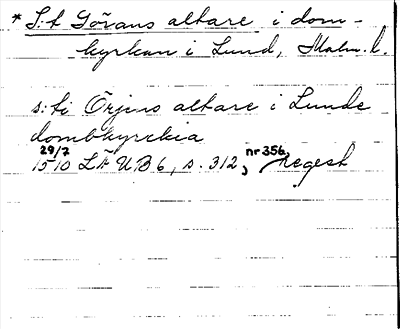 * S:t Görans altare i dom-
kyrkan i Lund, Malm. l.
s:ti Örjens altare i Lunde
dombkyrckia
29/7
1510 LÄUB 6, s. 312, nr 356, regest